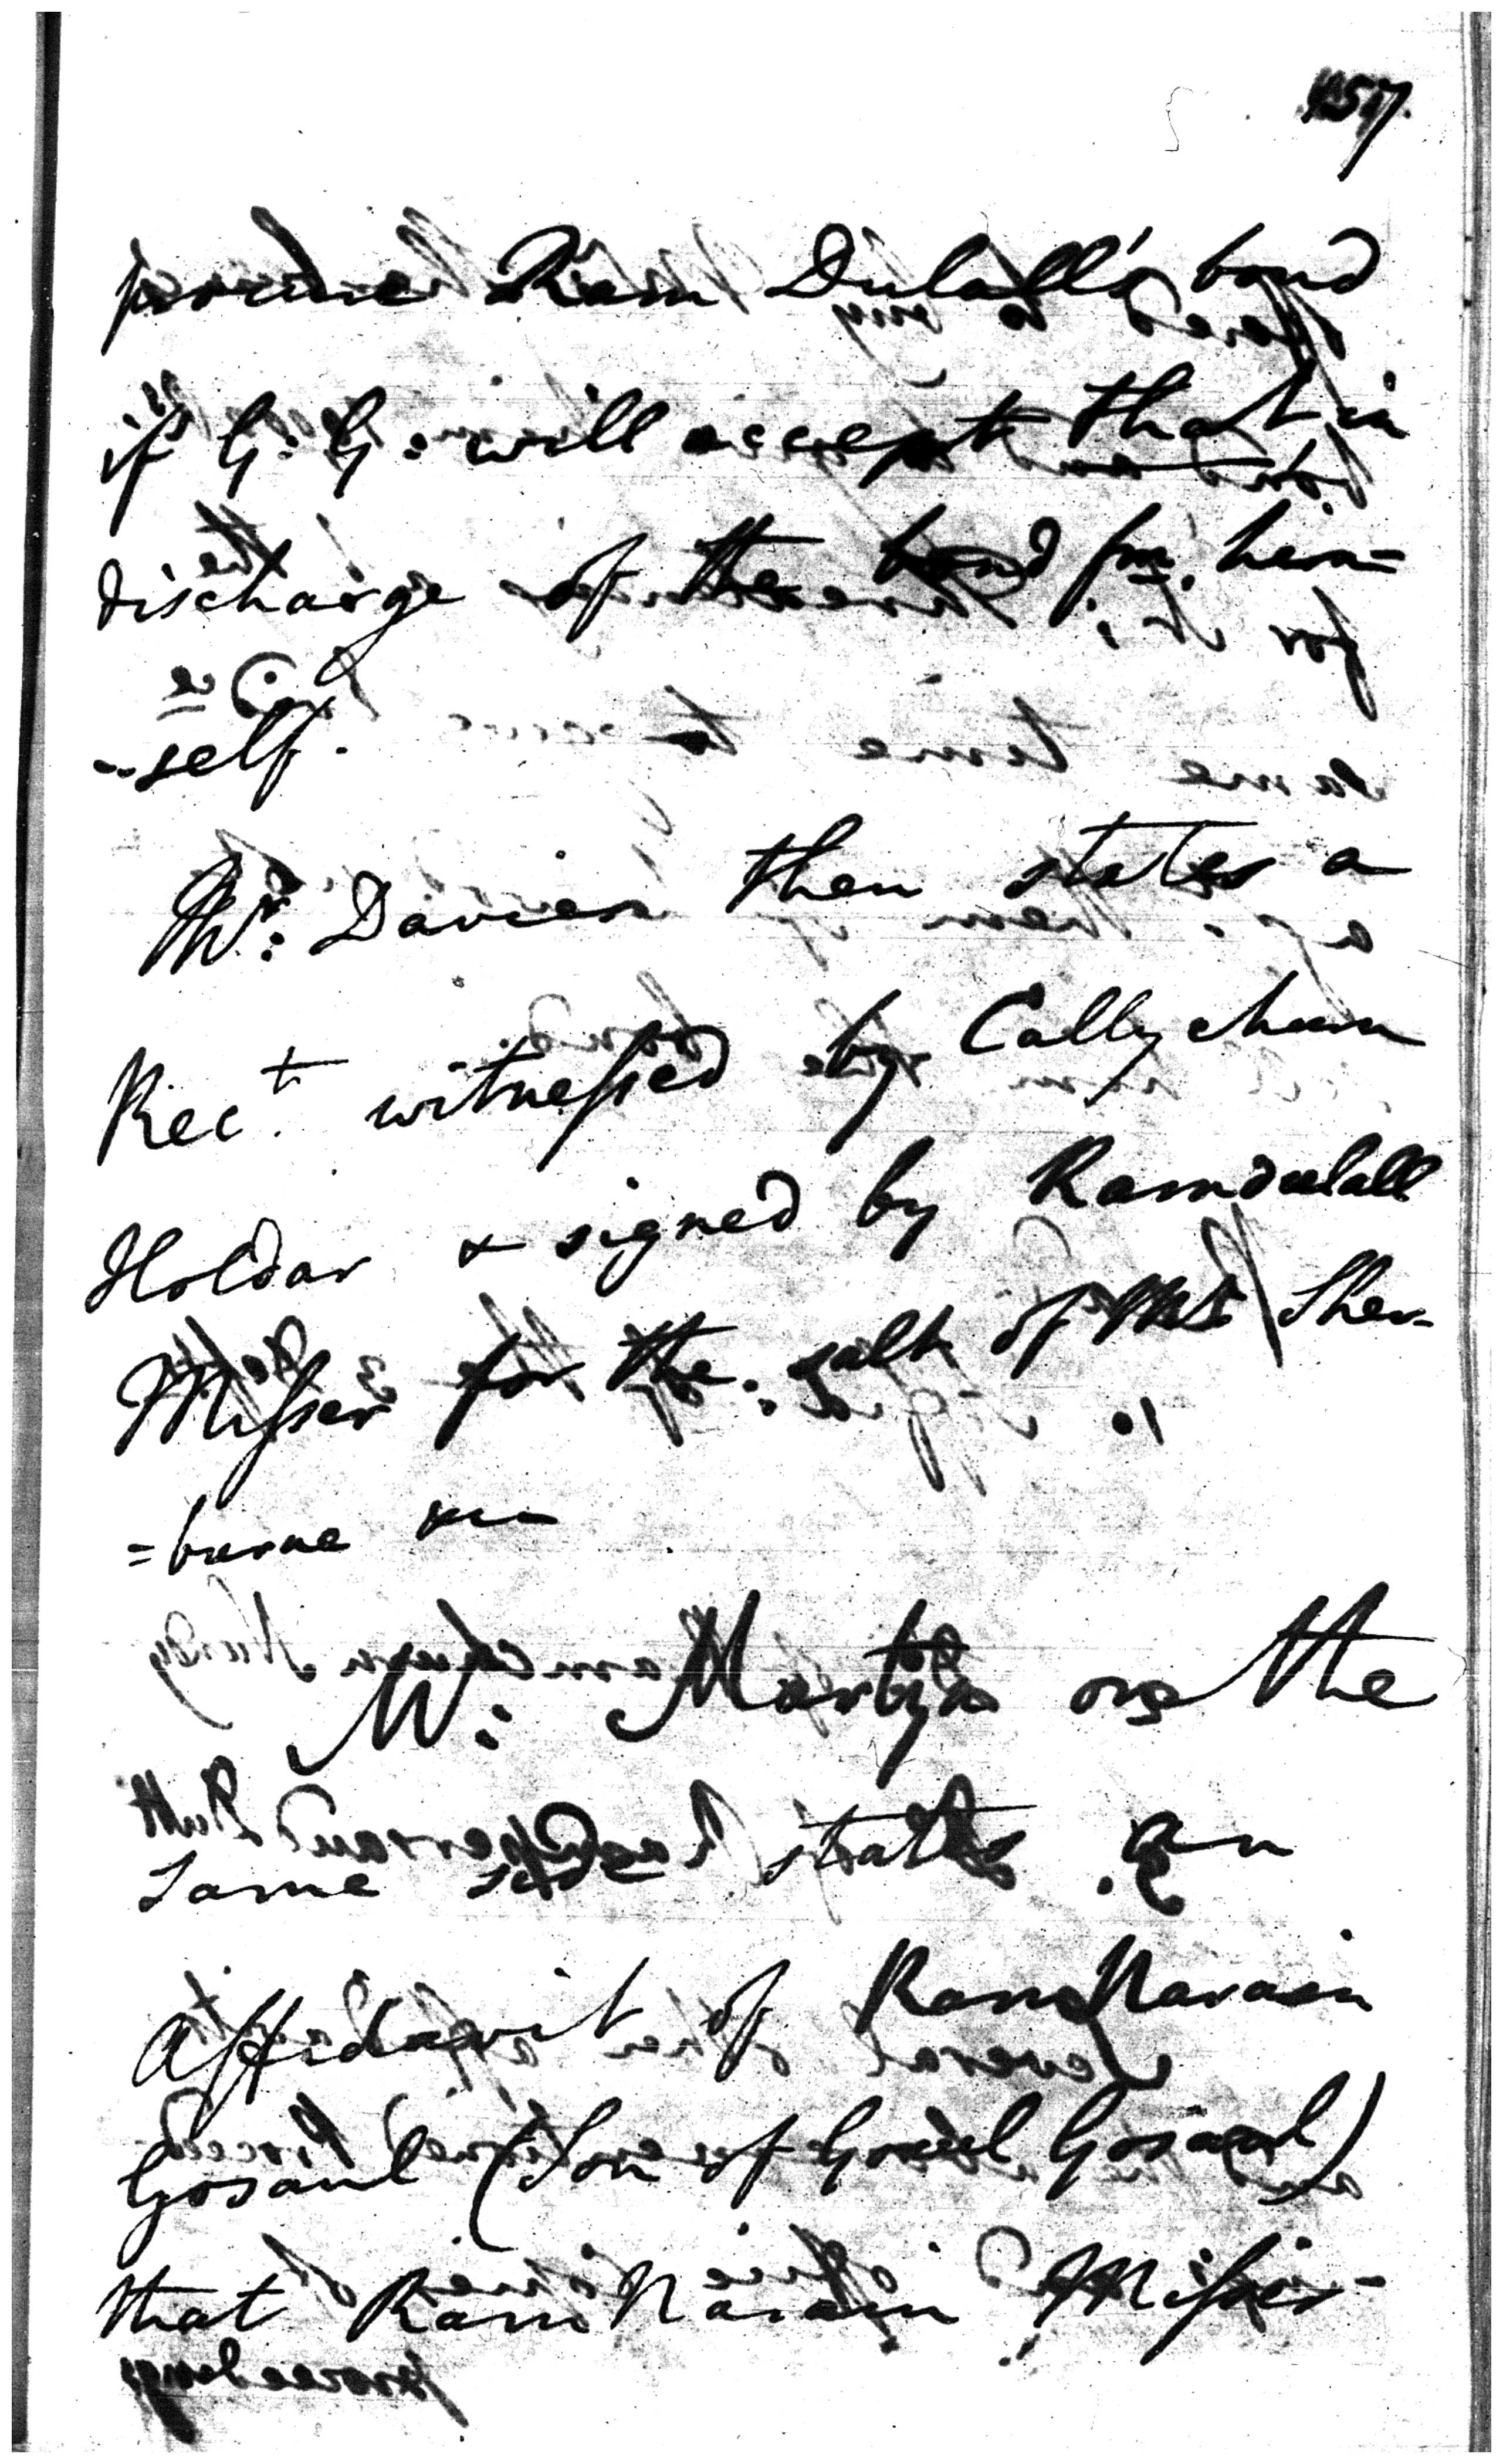 457.
procure Ram Dulall's bond
if G: G: will accept that in
discharge of the bond fm. him=
-self.
Mr: Davies then states a
Rect. witnessed by Callychurn
Holdar & signed by Ramdulall
Misser for the salt of Mr Sher-
=burne
Mr: Martyn on the
same side states an
Affidavit of Ram Narain
Gosaul (Son of Gocul Gosaul)
that Ram Narain Misser